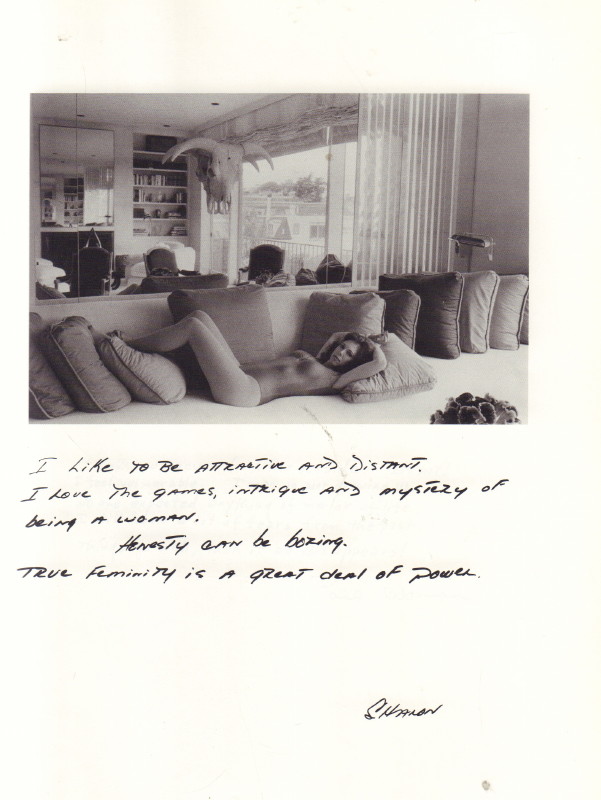 I LIKE TO BE ATTRACTIVE AND DISTANT.
I LOVE THE GAMES, INTRIGUE AND MYSTERY OF
BEING A WOMAN.
HONESTY CAN BE BORING.
TRUE FEMINITY IS A GREAT DEAL OF POWER.
SHARON